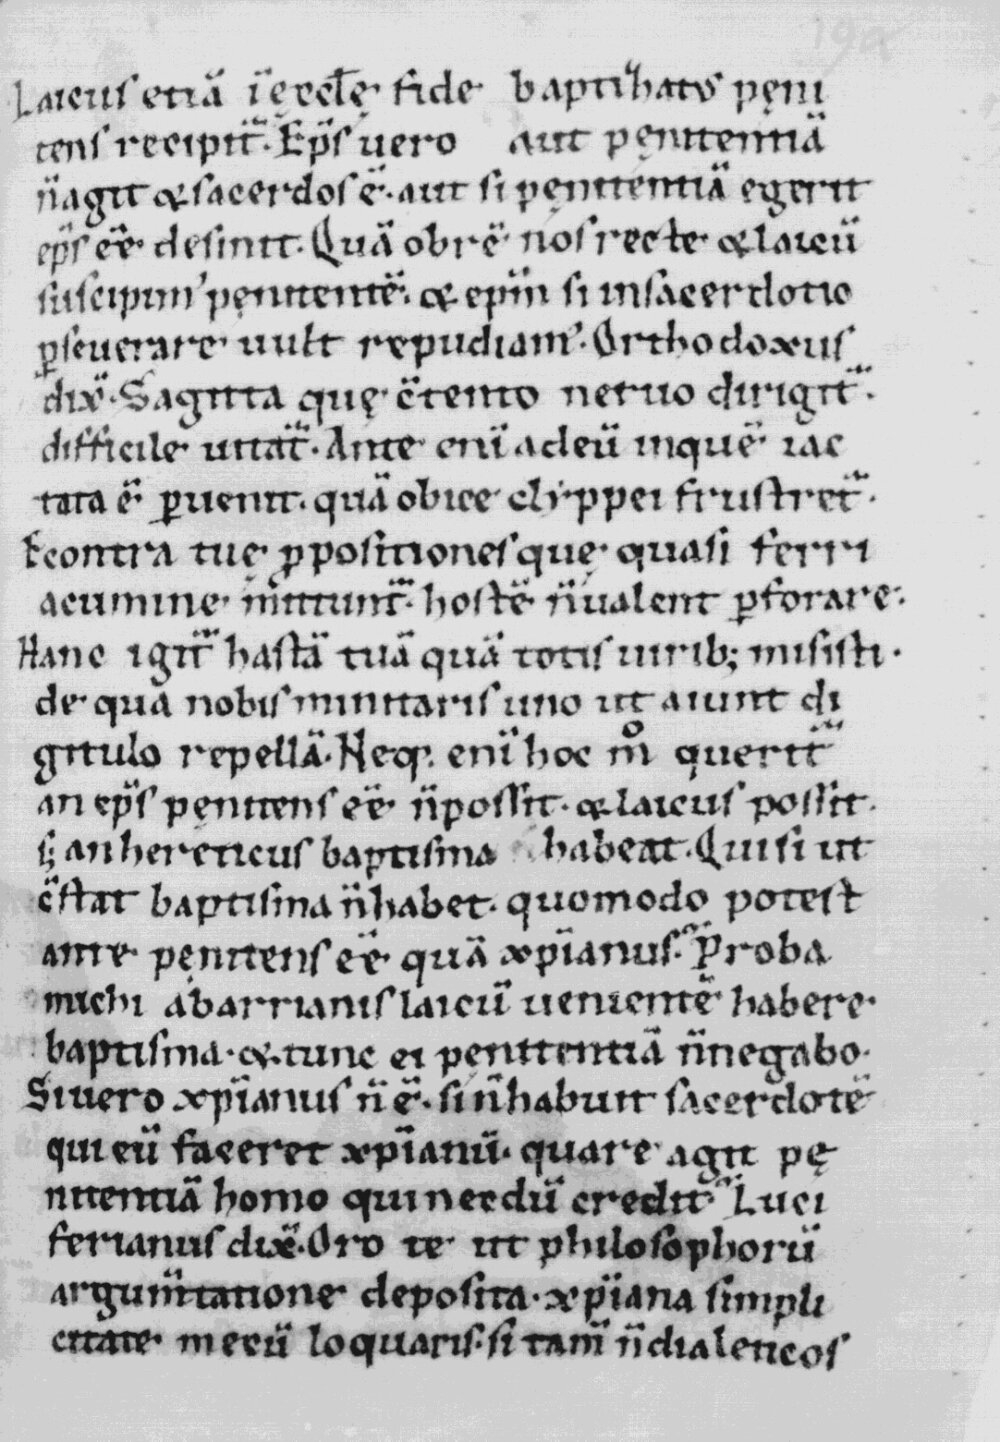 Laicus etiā ī ęcclę fide baptihatus pęni
tens recipit̄. Ep̄s uero aut pęnitentiā
n̄ agit & sacerdos ē. aut si pęnitentiā egerit
ep̄s eē desinit. Quā obrē nos recte & laicū
suscipim' pęnitentē. & epīn si insacerdotio
ꝑseuerare uult repudiam'. Orthodoxus
dix̄. Sagitta quę c̄tento neruo dirigit̄.
difficile uitat̄. Ante enī adeū inquē iac
tata ē ꝑuenit. quā obice clyppei frustret̄.
Econtra tuę ꝓpositiones quę quasi ferri
acumine mittunt̄. hostē n̄ualent ꝑforare.
Hanc igit̄ hastā tuā quā totis uirib; misisti.
de qua nobis minitaris uno ut aiunt di
gitulo repellā. Neq; enī hoc m̊ querit̄
an ep̄s pęnitens eē n̄possit. & laicus possit.
s; an hereticus baptisma habeat. Qui si ut
c̄stat baptisma n̄habet. quomodo potest
ante pęnitens eē quā xp̄ianus. Proba
michi abarrianis laicū uenientē habere
baptisma. & tunc ei penitentiā n̄negabo.
Si uero xp̄ianus n̄ ē. si n̄habuit sacerdotē
qui eū faceret xp̄ianū. quare agit pę
nitentiā homo qui necdū credit Luci
ferianus dix̄. Oro te ut philosophorū
argum̄tatione deposita. xp̄iana simpli
citate mecū loquaris. si tam̄ n̄dialeticos